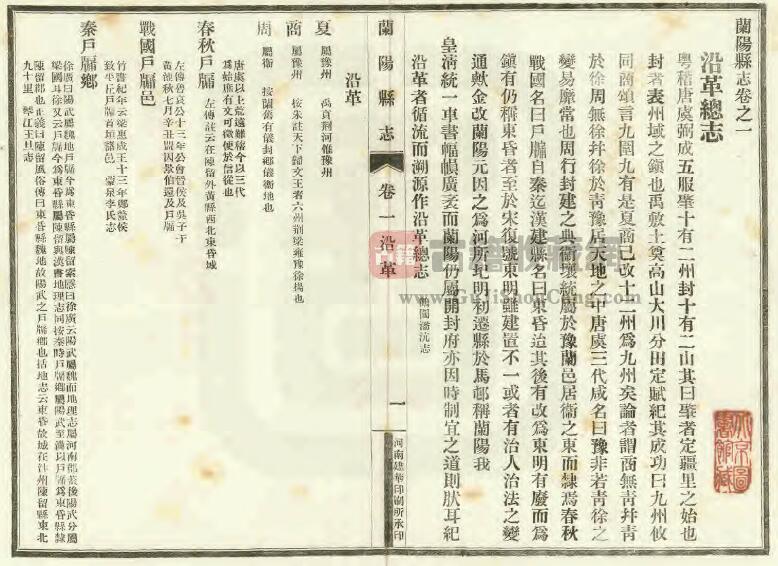 蘭陽縣志卷之一
沿革總志
粵稽唐虞弼成五服肇十有二州封十有二山其曰肇者定疆里之始也
封者表州域之鎮也禹敷土奠高山大川分田定賦紀其成功曰九州攸
同商頌言九圍九有是夏商已改十二州爲九州矣論者謂商無青幷青
於徐周無徐幷徐於青豫居天地之中唐虞三代咸名曰豫非若青徐之
變易靡常也周行封建之典衞壤統屬於豫蘭邑居衞之東而隸焉春秋
戰國名曰戶牖自秦迄漢建縣名曰東昏迨其後有改爲東明有廢而爲
鎮有仍稱東昏者至於宋復號東明雖建置不一或者有治人治法之變
通歟金改蘭陽元因之爲河所圮明初遷縣於馬邨稱蘭陽我
皇淸統一車書幅幀廣袤而蘭陽仍屬開封府亦因時制宜之道則狀耳紀
沿革者循流而溯源作沿革總志
蘭陽縣志
卷一沿革
一
河南建華印刷所承印
沿革
夏
屬豫州 禹貢荆河惟豫州
商
屬豫州 按朱註天下歸文王者六州荆梁雍豫徐揚也
周
屬衞 按蘭舊有儀封鄉儀衞地也
唐虞以上荒遠難稽今以三代
爲始庶有文可徵便於信從也
春秋戶牖
左傳魯哀公十三年公會晉侯及吳子于
黃池秋七月辛丑盟因景伯還及戶牖
左傳註云在陳留外黃縣西北東昏城
戰國戶牖邑
竹書紀年云梁惠成王十三年鄭釐侯
致平丘戶牖首垣諸邑
秦戶牖鄉
徐廣曰陽武魏地戶牖今爲東昏縣屬陳留索隱曰徐廣云陽武屬魏而地理志屬河南郡蓋後陽武分屬
梁國耳徐又云戶牖今爲東昏縣屬陳留與漢書地理志同按秦時戶牖鄉屬陽武至漢以戶牖爲東昏縣隸
陳留郡也正義曰陳留風俗傳曰東昏縣魏地故陽武之戶牖鄉也括地志云東昏故城在汴州陳留縣東北
九十里
古籍收藏網
www.GuJiShouCang.com